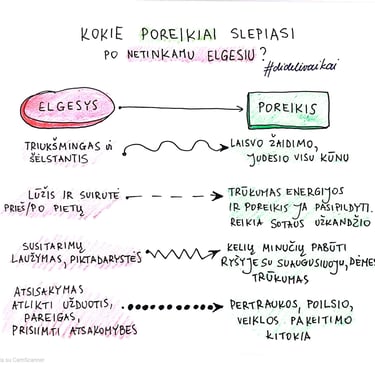 KOKIE POREIKIAI SLEPIASI
PO NETINKAMU ELGESIU?
#didelivaikai
ELGESYS
POREIKIS
TRIUKŠMINGAS IR
ŠĖLSTANTIS
LAISVO ŽAIDIMO,
JUDESIO VISU KŪNU
LŪŽIS IR SUIRUTĖ
PRIEŠ/PO PIETŲ
TRŪKUMAS ENERGIJOS
IR POREIKIS JĄ PASIPILDYTI.
REIKIA SOTAUS UŽKANDŽIO
SUSITARIMŲ
LAUŽYMAS, PIKTADARYSTĖS
KELIŲ MINUČIŲ PABŪTI
RYŠYJE SU SUAUGUSIUOJU, DĖMES
TRŪKUMAS
ATSISAKYMAS
ATLIKTI UŽDUOTIS,
PAREIGAS,
PRISIIMTI ATSAKOMYBĘS
PERTRAUKOS, POILSIO,
VEIKLOS PAKEITIMO
KITOKIA
su CamScanner